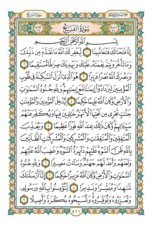 سُورَةُ الفَتْحِ
بِسْمِ اللَّهِ الرَّحْمَٰنِ الرَّحِيمِ
إِنَّا فَتَحْنَا لَكَ فَتْحًا مُّبِينًا ١ لِّيَغْفِرَ لَكَ اللَّهُ مَا تَقَدَّمَ مِن ذَنبِكَ
وَمَا تَأَخَّرَ وَيُتِمَّ نِعْمَتَهُ عَلَيْكَ وَيَهْدِيَكَ صِرَٰطًا مُّسْتَقِيمًا ٢
وَيَنصُرَكَ اللَّهُ نَصْرًا عَزِيزًا ٣ هُوَ الَّذِي أَنزَلَ السَّكِينَةَ فِي قُلُوبِ
الْمُؤْمِنِينَ لِيَزْدَادُوا إِيمَٰنًا مَّعَ إِيمَٰنِهِمْ وَلِلَّهِ جُنُودُ السَّمَٰوَٰتِ
وَالْأَرْضِ وَكَانَ اللَّهُ عَلِيمًا حَكِيمًا ٤ لِّيُدْخِلَ الْمُؤْمِنِينَ وَالْمُؤْمِنَٰتِ
جَنَّٰتٍ تَجْرِي مِن تَحْتِهَا الْأَنْهَٰرُ خَٰلِدِينَ فِيهَا وَيُكَفِّرَ عَنْهُمْ
سَيِّـَٔاتِهِمْ وَكَانَ ذَٰلِكَ عِندَ اللَّهِ فَوْزًا عَظِيمًا ٥ وَيُعَذِّبَ
الْمُنَٰفِقِينَ وَالْمُنَٰفِقَٰتِ وَالْمُشْرِكِينَ وَالْمُشْرِكَٰتِ الظَّانِّينَ
بِاللَّهِ ظَنَّ السَّوْءِ عَلَيْهِمْ دَائِرَةُ السَّوْءِ وَغَضِبَ اللَّهُ عَلَيْهِمْ وَلَعَنَهُمْ
وَأَعَدَّ لَهُمْ جَهَنَّمَ وَسَاءَتْ مَصِيرًا ٦ وَلِلَّهِ جُنُودُ السَّمَٰوَٰتِ
وَالْأَرْضِ وَكَانَ اللَّهُ عَزِيزًا حَكِيمًا ٧ إِنَّا أَرْسَلْنَٰكَ
شَٰهِدًا وَمُبَشِّرًا وَنَذِيرًا ٨ لِّتُؤْمِنُوا بِاللَّهِ وَرَسُولِهِ
وَتُعَزِّرُوهُ وَتُوَقِّرُوهُ وَتُسَبِّحُوهُ بُكْرَةً وَأَصِيلًا ٩
٥١١